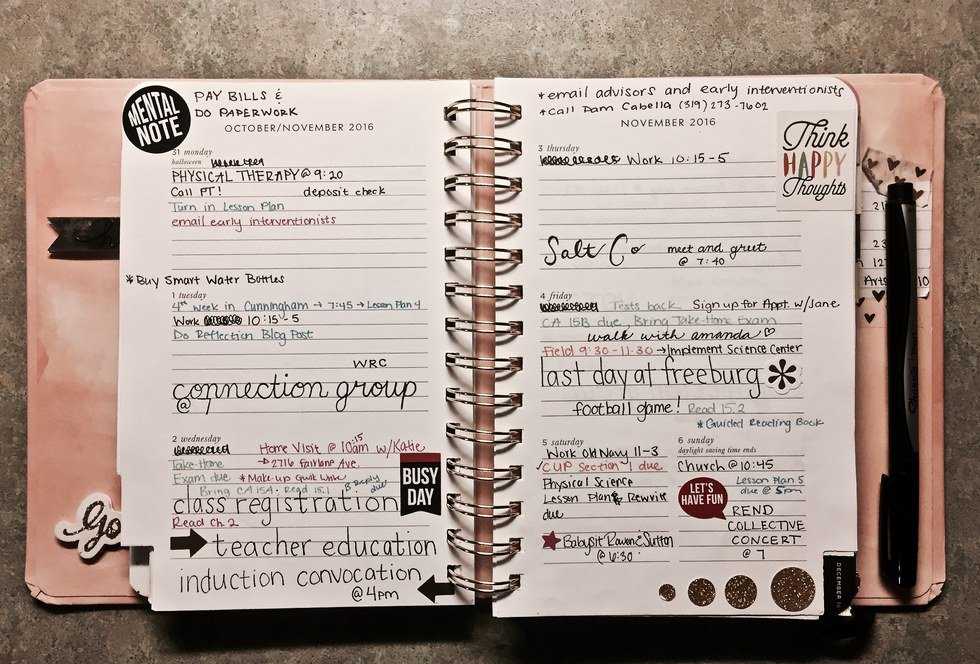 MENTAL NOTE
PAY BILLS &
DO PAPERWORK
OCTOBER/NOVEMBER 2016
31 monday
halloween
PHYSICAL THERAPY @ 9:20
Call PT! deposit check
Turn in Lesson Plan
email early interventionists
*Buy Smart Water Bottles
1 tuesday
4th week in Cunningham → 7:45 → Lesson Plan 4
Work 10:15-5
Do Reflection Blog Post
WRC
@ connection group
2 wednesday
Home Visit @ 10:15am w/Katie
Take-Home → 2716 Fairlane Ave.
Exam due *Make-up Quik Write
Bring CA 15A. Read 15.1
BUSY DAY
class registration
Read Ch.2
teacher education
induction convocation
@ 4pm
Go
*email advisors and early interventionists
*Call Pam Cabella (319) 273-7602
NOVEMBER 2016
3 thursday
Work 10:15-5
Think
HAPPY
Thoughts
Salt Co meet and greet
@ 7:40
4 friday
Tests back Sign up for Appt. w/Jane
CA 15B due, Bring Take-Home Exam
walk with amanda
Field 9:30-11:30 → Implement Science Center
last day at freeburg
football game! Read 15.2
*Guided Reading Book
5 saturday
Work Old Navy 11-3
CUP Section 1 due
Physical Science
Lesson Plan & Rewrite
due
Babysit Raven & Sutton
@ 6:30
6 sunday
daylight saving time ends
Church @ 10:45
Lesson Plan 5
due @ 5pm
LET'S HAVE FUN
REND
COLLECTIVE
CONCERT
@ 7
DECEMBER
21
23
12
Arts 10